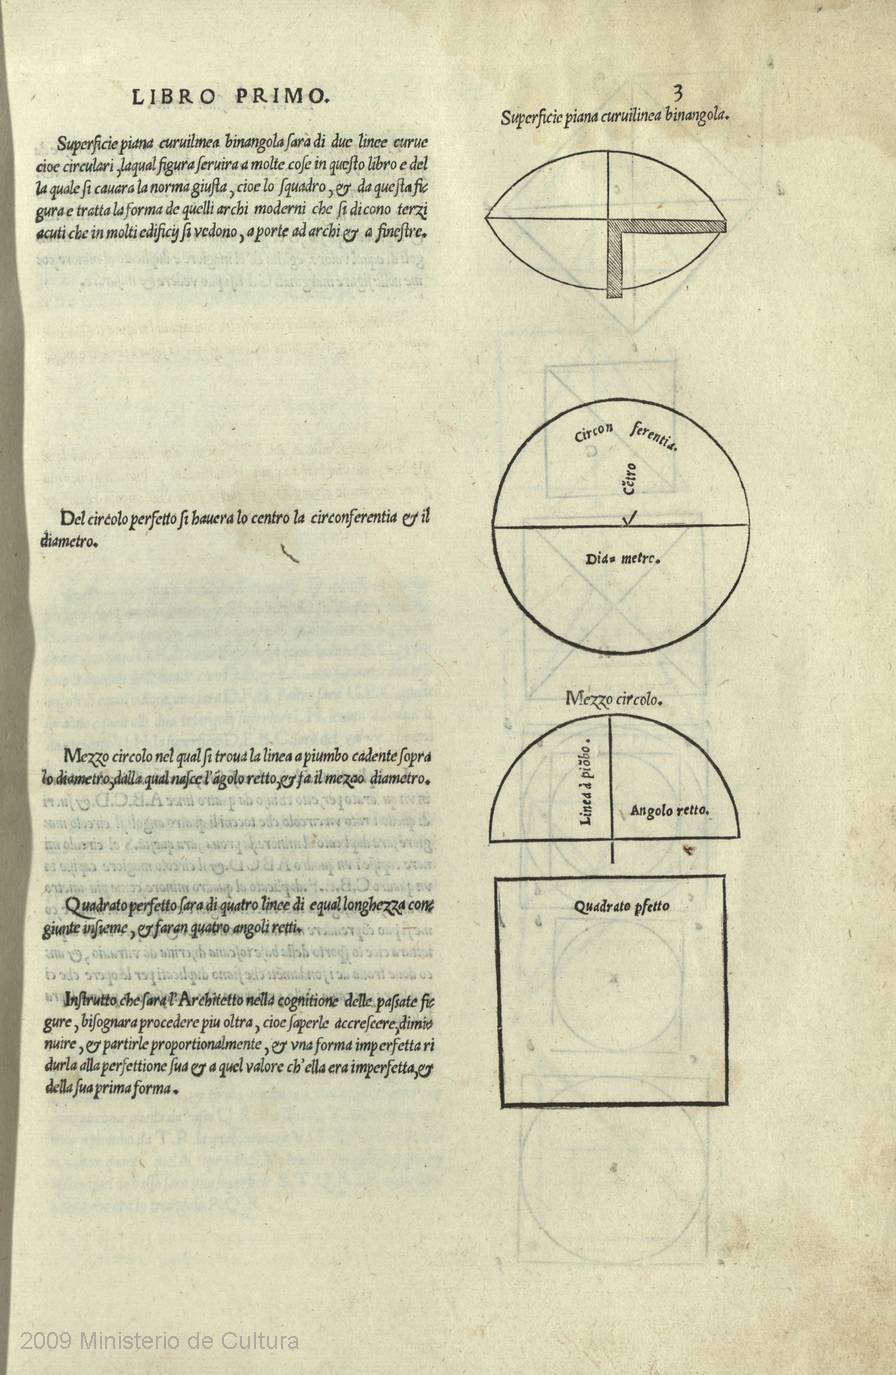 LIBRO PRIMO.
3
Superficie piana curuilinea binangola sara di due linee curue
cioe circulari, laqual figura seruira a molte cose in questo libro e del
la quale si cauara la norma giusta, cioe lo squadro, & da questa fi-
gura e tratta la forma de quelli archi moderni che si dicono terzi
acuti che in molti edificij si vedono, a porte ad archi & a finestre.
Superficie piana curuilinea binangola.
Del circolo perfetto si hauera lo centro la circonferentia & il
diametro.
Circon ferentia.
Cẽtro
Dia= metro.
Mezzo circolo nel qual si troua la linea a piumbo cadente sopra
lo diametro, dalla qual nasce l'āgolo retto, & fa il mezzo diametro.
Mezzo circolo.
Linea à piõbo.
Angolo retto.
Quadrato perfetto sara di quatro linee di equal longhezza con=
giunte insieme, & faran quatro angoli retti.
Quadrato pfetto
Instrutto che sara l'Architetto nella cognitione delle passate fi-
gure, bisognara procedere piu oltra, cioe saperle accrescere, dimi-
nuire, & partirle proportionalmente, & vna forma imperfetta ri
durla alla perfettione sua & a quel valore ch'ella era imperfetta, &
della sua prima forma.
2009 Ministerio de Cultura